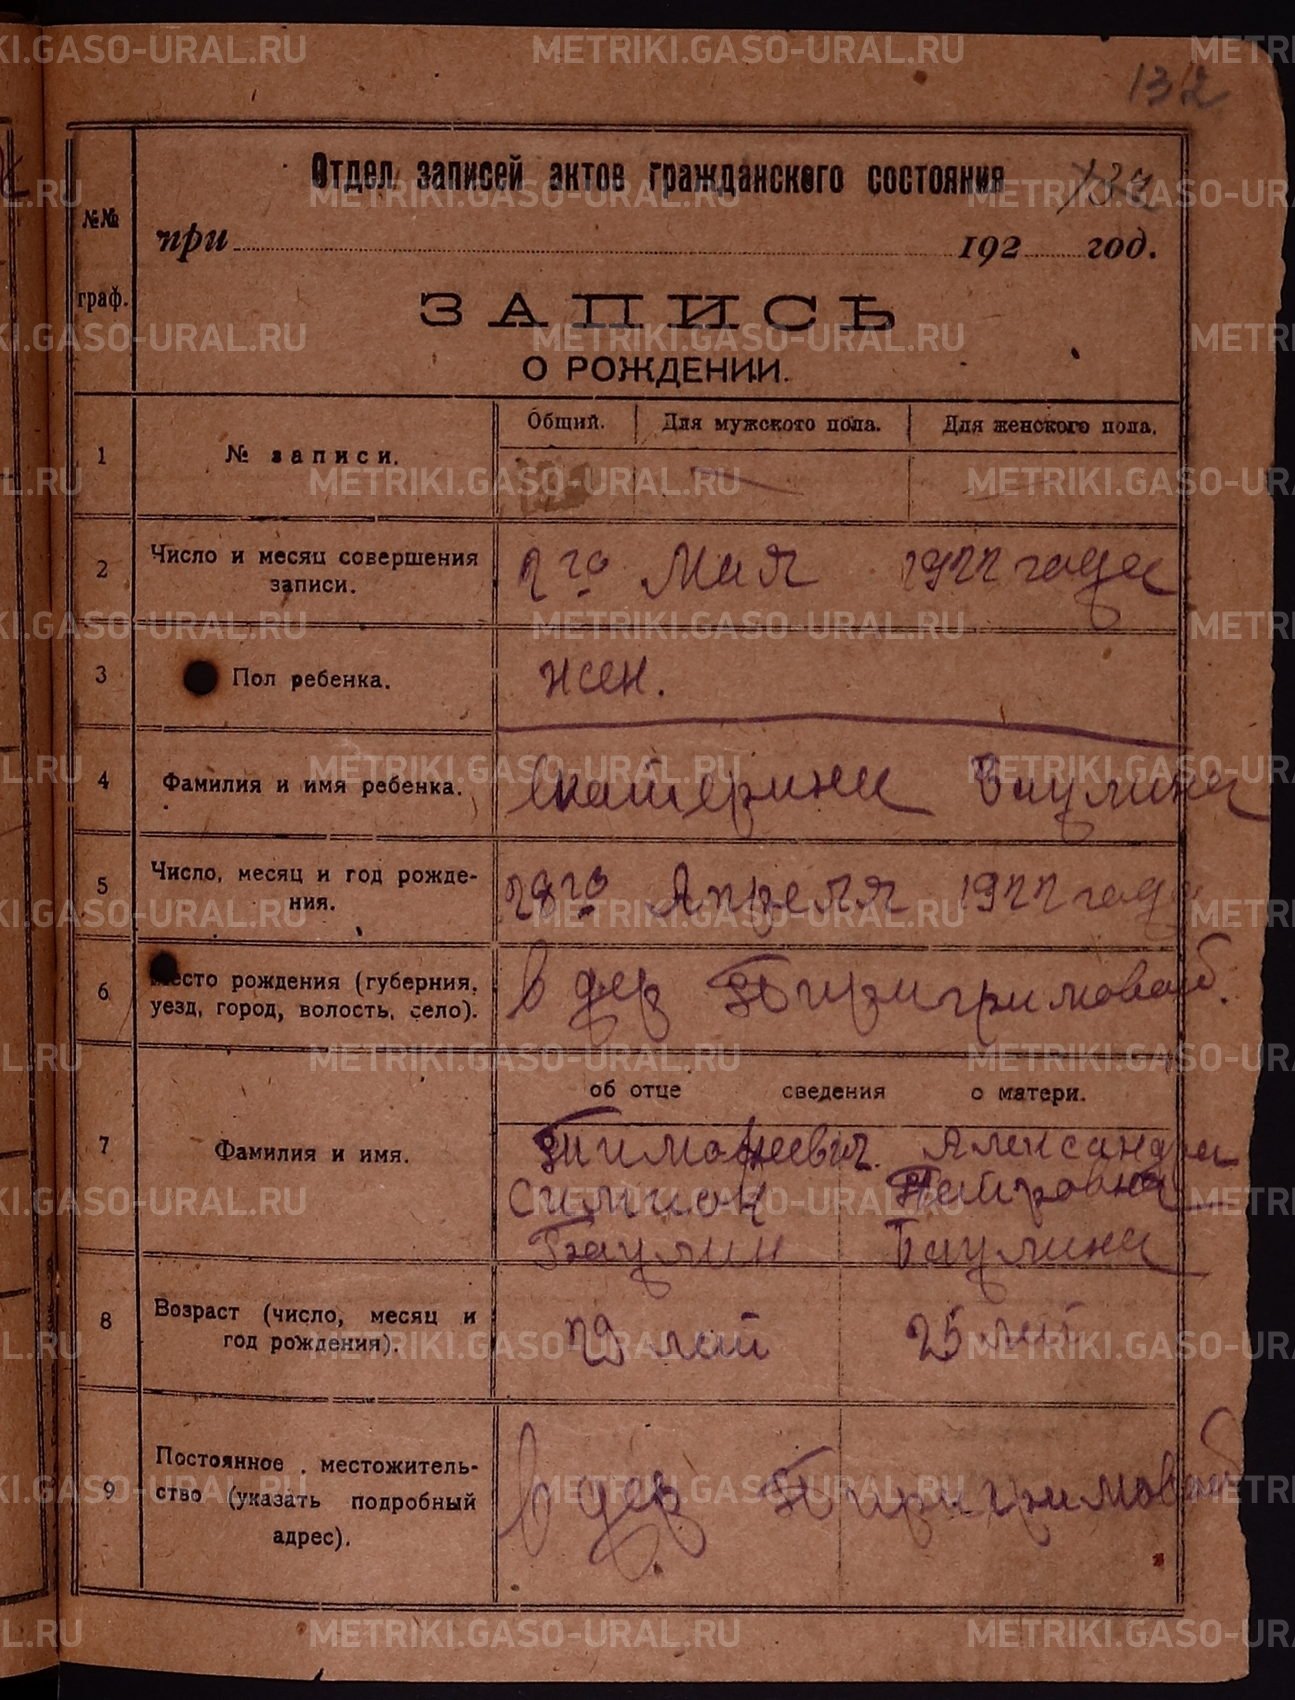 132
Отдел записей актов гражданского состояния 132
№№ граф.
при 192 год.
ЗАПИСЬ
О РОЖДЕНИИ.
Общий. Для мужского пола. Для женского пола.
1 № записи.
2 Число и месяц совершения записи. 2го Мая 1922 года
3 Пол ребенка. жен.
4 Фамилия и имя ребенка. Екатерина Ваулина
5 Число, месяц и год рожде-
ния. 28го Апреля 1922 года
6 Место рождения (губерния, уезд, город, волость, село). в дер
об отце сведения о матери.
7 Фамилия и имя. Александра
Симион Петровна
Ваулин Ваулина
8 Возраст (число, месяц и год рождения). 29 лет 25 лет
9 Постоянное местожитель-
ство (указать подробный адрес). в дер
METRIKI.GASO-URAL.RU